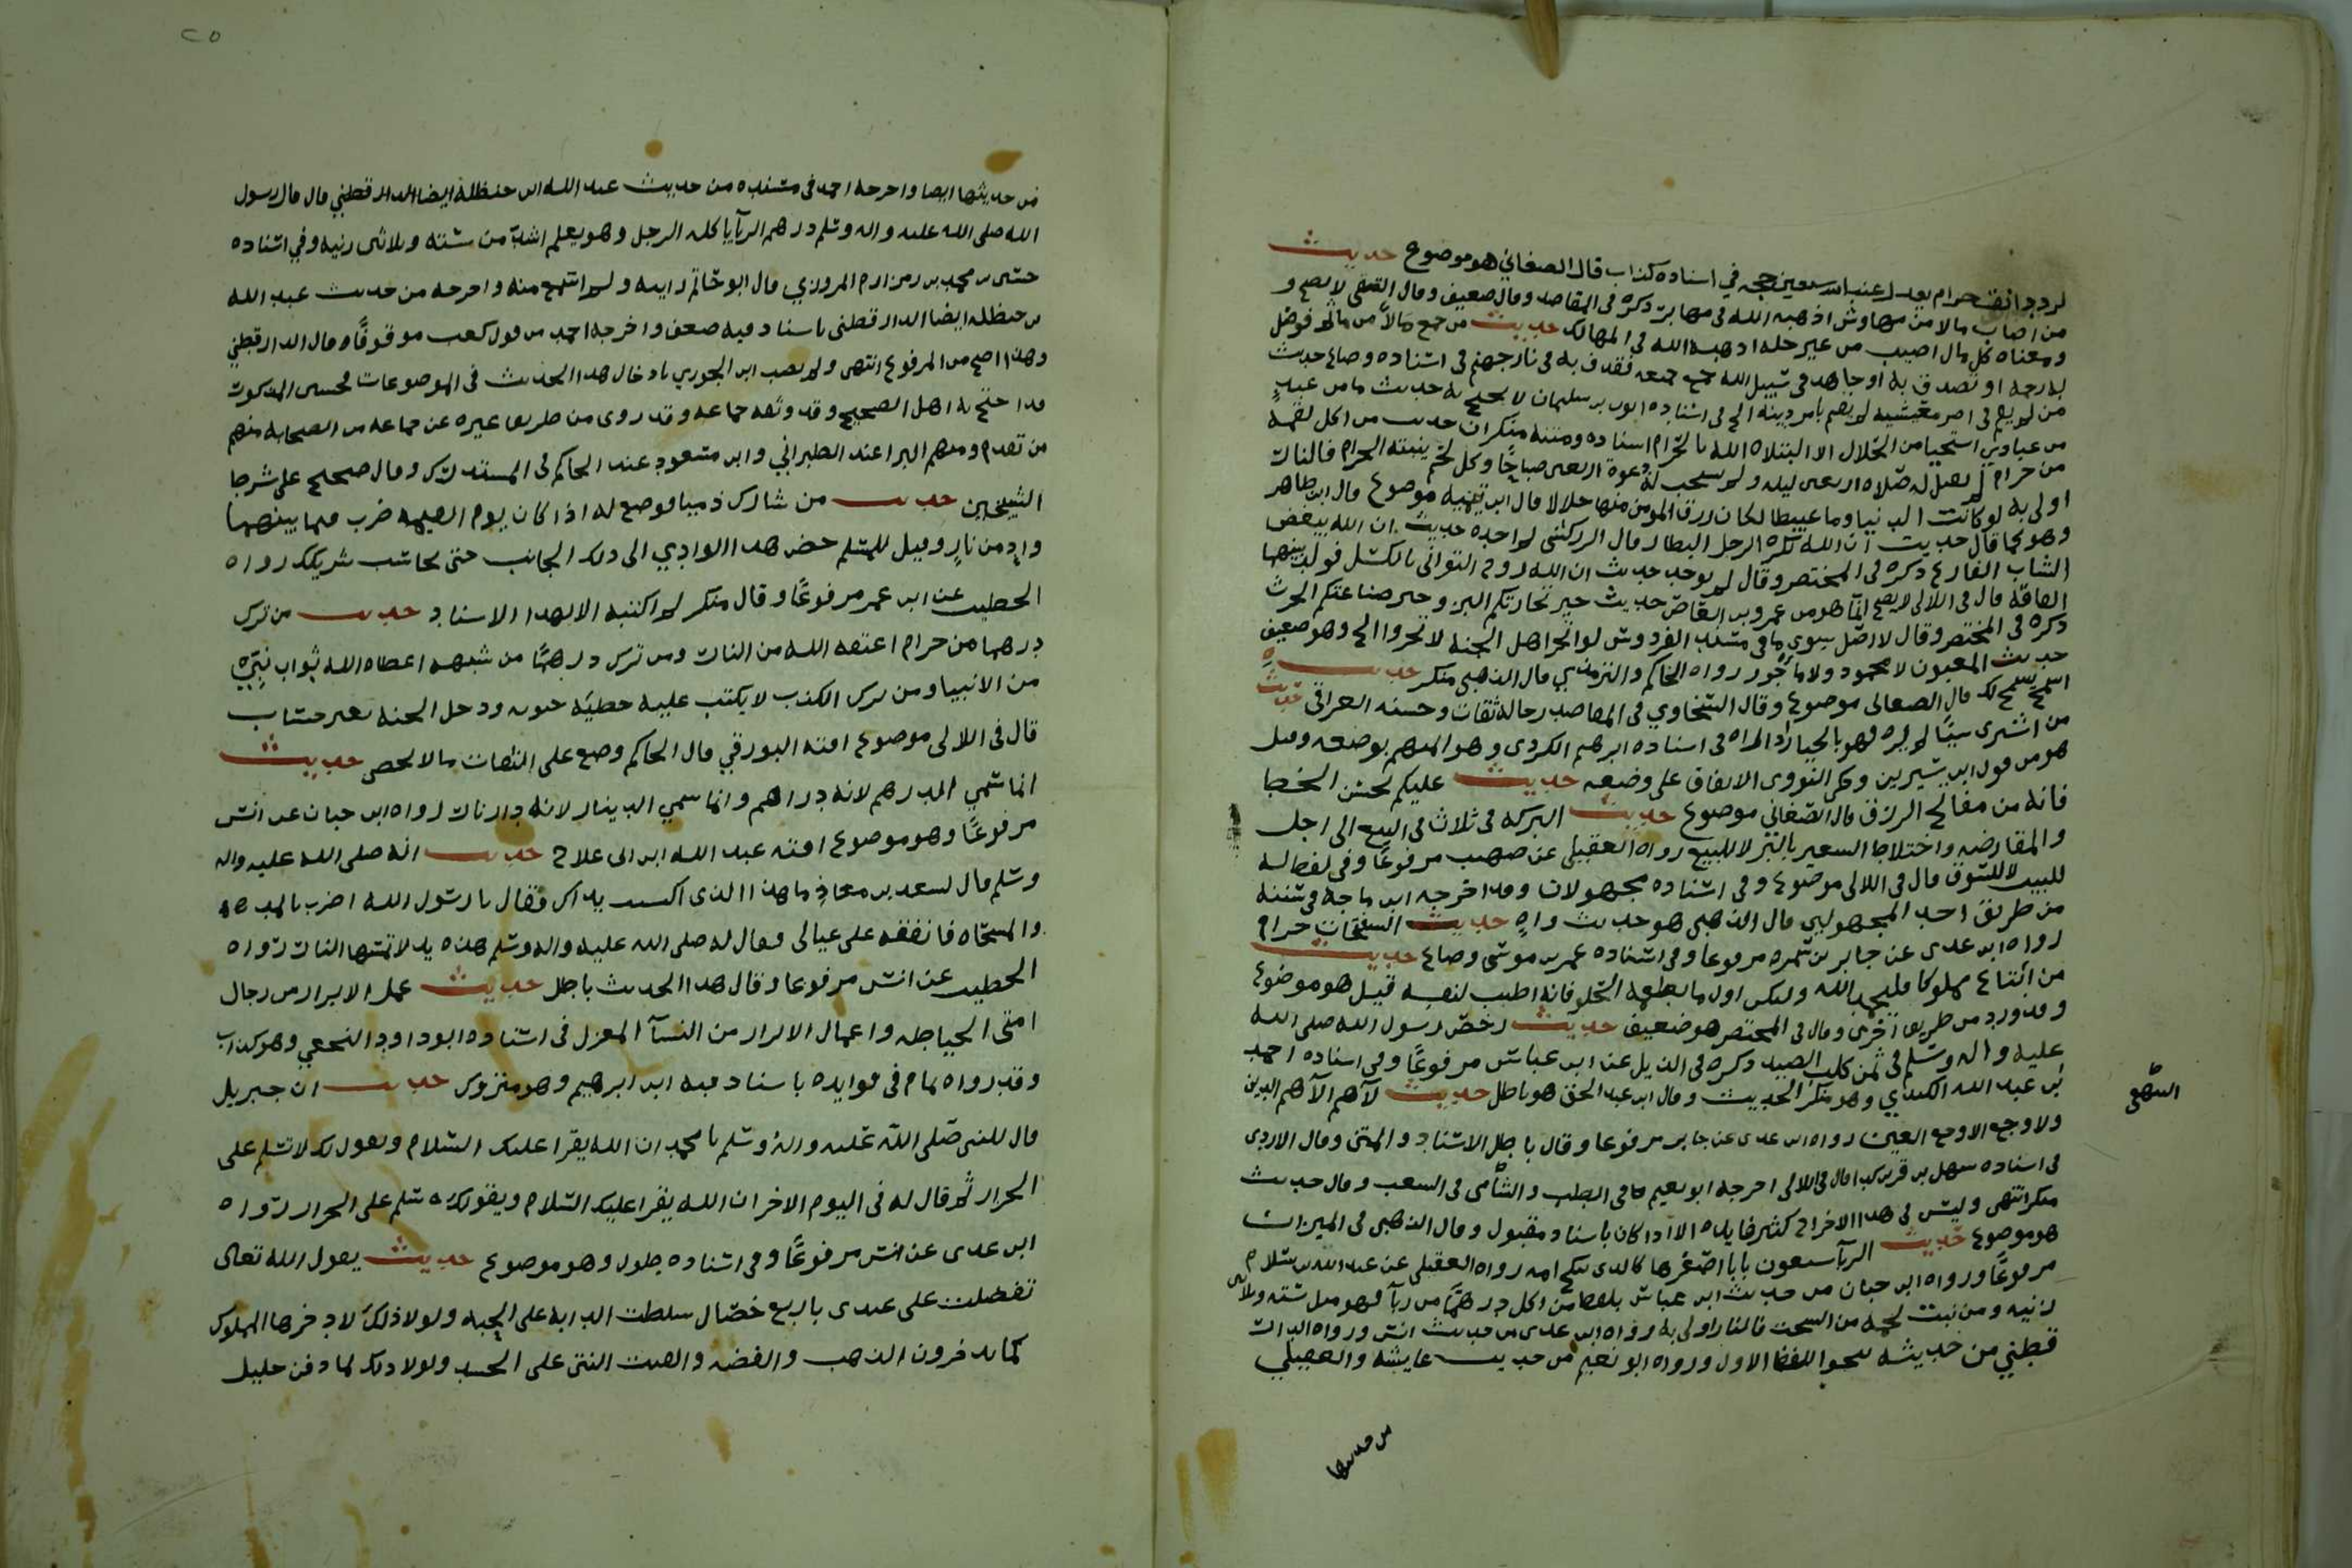 لرد دانق حرام يعدل عند الله سبعين حجه في اسناده كذاب قال الصغاني هو موضوع حديث
من اصاب مالا من مهاوش اذهبه الله في مهابر ذكره في المقاصد وقال ضعيف وقال التقي لا يصح و
ومعناه كل مال اصيب من غير حله اذهبه الله في المهالك حديث من جمع مالا من ماثم فوصل
به رحمه او تصدق به او جاهد في سبيل الله جمع جميعه فقذف به في نار جهنم في اسناده وضاع حديث
من لم يهتم في امر معيشته لم يهتم بامر دينه الخ في اسناده ايوب بن سليمان لا يحتج به حديث ما من عبد
من عبادي استحيا من الحلال الا ابتلاه الله بالحرام اسناده ومتنه منكران حديث من اكل لقمة
من حرام لم تقبل له صلاه اربعين ليله ولم تستجب له دعوة اربعين صباحًا وكل لحم ينبته الحرام فالنار
اولى به لو كانت الدنيا دما عبيطا لكان رزق المومن منها حلالا قال ابن تيميه موضوع قال ابن طاهر
وهو كما قال حديث ان الله يكره الرجل البطال قال الزركشي لم اجده حديث ان الله يبغض
الشاب الفارغ ذكره في المختصر وقال لم يوجد حديث ان الله زوج التواني بالكسل فولد بينهما
الفاقة قال في اللالي لا يصح انما هو من عمرو بن العاص حديث خير تجارتكم البز وخير صناعتكم الخرز
ذكره في المختصر وقال لا اصل سوى ما في مسند الفردوس لو اتجر اهل الجنة لا تجروا الخ وهو ضعيف
حديث المغبون لا محمود ولا ماجور رواه الحاكم والترمذي قال الذهبي منكر حديث
اسمح يسمح لك قال الصغاني موضوع وقال السخاوي في المقاصد رجاله ثقات وحسنه العراقي حديث
من اشترى شيًا لم يره فهو بالخيار اذا راه في اسناده ابرهيم الكردي وهو المتهم بوضعه وقيل
هو من قول ابن سيرين وحكى النووي الاتفاق على وضعه حديث عليكم بحسن الخط
فانه من مفاتح الرزق قال الصغاني موضوع حديث البركه في ثلاث في البيع الى اجل
والمقارضه واختلاط الشعير بالبر لا للبيع رواه العقيلي عن صهيب مرفوعًا وفي لفظ له
للبيت لا للسوق قال في اللالي موضوع وفي اسناده مجهولان وقد اخرجه ابن ماجة في سننه
من طريق احد المجهولين قال الذهبي هو حديث واهٍ حديث السفتجات حرام
رواه ابن عدي عن جابر بن سمره مرفوعا وفي اسناده عمر بن موسى وضاع حديث
من ابتاع مملوكا فليحمد الله وليكن اول ما يطعمه الحلو فانه اطيب لنفسه قيل هو موضوع
وقد ورد من طريق اخرى وقال في المختصر هو ضعيف حديث رخص رسول الله صلى الله
عليه واله وسلم في ثمن كلب الصيد ذكره في الذيل عن ابن عباس مرفوعًا وفي اسناده احمد
بن عبد الله الكندي وهو منكر الحديث وقال ابن عبد الحق هو باطل حديث لا هم الا هم الدين
ولا وجع الا وجع العين رواه ابن عدي عن جابر مرفوعا وقال باطل الاسناد والمتن وقال الازدي
في اسناده سهل بن قرين كذاب قال في اللالي اخرجه ابو نعيم في الطب والبيهقي في الشعب وقال حديث
منكر انتهى وليس في هذا الاخراج كثير فايدة الا اذا كان باسناد مقبول وقال الذهبي في الميزان
هو موضوع حديث الربا سبعون بابا اصغرها كالذي ينكح امه رواه العقيلي عن عبد الله بن سلام
مرفوعًا ورواه ابن حبان من حديث ابن عباس بلفظ من اكل درهمًا من ربا فهو مثل سته وثلاثين
زنيه ومن نبت لحمه من السحت فالنار اولى به رواه ابن عدي من حديث انس ورواه الدار
قطني من حديثه بنحو اللفظ الاول ورواه ابو نعيم من حديث عايشه والعقيلي
من حديثها
البيهقي
٢٥
من حديثها ايضا واخرجه احمد في مسنده من حديث عبد الله ابن حنظلة ايضا الدارقطني قال قال رسول
الله صلى الله عليه واله وسلم درهم الربا ياكله الرجل وهو يعلم اشد من سته وثلاثين زنيه وفي اسناده
حسين بن محمد بن بهرام المروزي قال ابو حاتم رايته ولم اسمع منه واخرجه من حديث عبد الله
بن حنظله ايضا الدارقطني باسناد فيه ضعف واخرجه احمد من قول كعب موقوفًا وقال الدارقطني
وهذا اصح من المرفوع انتهى ولم يصب ابن الجوزي بادخال هذا الحديث في الموضوعات فحسين المذكور
قد احتج به اهل الصحيح وقد وثقه جماعه وقد روى من طريق غيره عن جماعه من الصحابه منهم
من تقدم ومنهم البرا عند الطبراني وابن مسعود عند الحاكم في المستدرك وقال صحيح على شرط
الشيخين حديث من شارك ذميا فتوضع له اذا كان يوم القيمه ضرب فيما بينهما
وادٍ من نارٍ وقيل للمسلم خض هذا الوادي الى ذلك الجانب حتى تحاسب شريكك رواه
الخطيب عن ابن عمر مرفوعًا وقال منكر لم اكتبه الا بهذا الاسناد حديث من ترك
درهما من حرام اعتقه الله من النار ومن ترك درهمًا من شبهه اعطاه الله ثواب نبي
من الانبيا ومن ترك الكذب لا يكتب عليه خطيه حوته ودخل الجنه بغير حساب
قال في اللالي موضوع افته البورقي قال الحاكم وضع على الثقات ما لا يحصى حديث
انما سمي الدرهم لانه دار هم وانما سمي الدينار لانه دار نار رواه ابن حبان عن انس
مرفوعًا وهو موضوع افته عبد الله ابن ابي علاج حديث انه صلى الله عليه واله
وسلم قال لسعد بن معاذ ما هذا الذي اكتبت يداك فقال يا رسول الله اضرب بالمر
والمسحاه فانفقه على عيالي فقال له صلى الله عليه واله وسلم هذه يد لا تمسها النار رواه
الخطيب عن انس مرفوعا وقال هذا الحديث باطل حديث عمل الابرار من رجال
امتي الخياطه واعمال الابرار من النسا المغزل في اسناده ابو داود النخعي وهو كذاب
وقد رواه تمام في فوايده باسناد فيه ابن ابرهيم وهو متروك حديث ان جبريل
قال للنبي صلى الله عليه واله وسلم يا محمد ان الله يقرا عليك السلام ويقول لك لا تسلم على
الجزار ثم قال له في اليوم الاخر ان الله يقرا عليك السلام ويقول لك سلم على الجزار رواه
ابن عدي عن انس مرفوعًا وفي اسناده طول وهو موضوع حديث يقول الله تعالى
تفضلت على عبدي باربع خصال سلطت الدابه على الحبه ولولا ذلك لادخرها الملوك
كما يدخرون الذهب والفضه والقيت النتن على الجسد ولولا ذلك لما دفن خليل